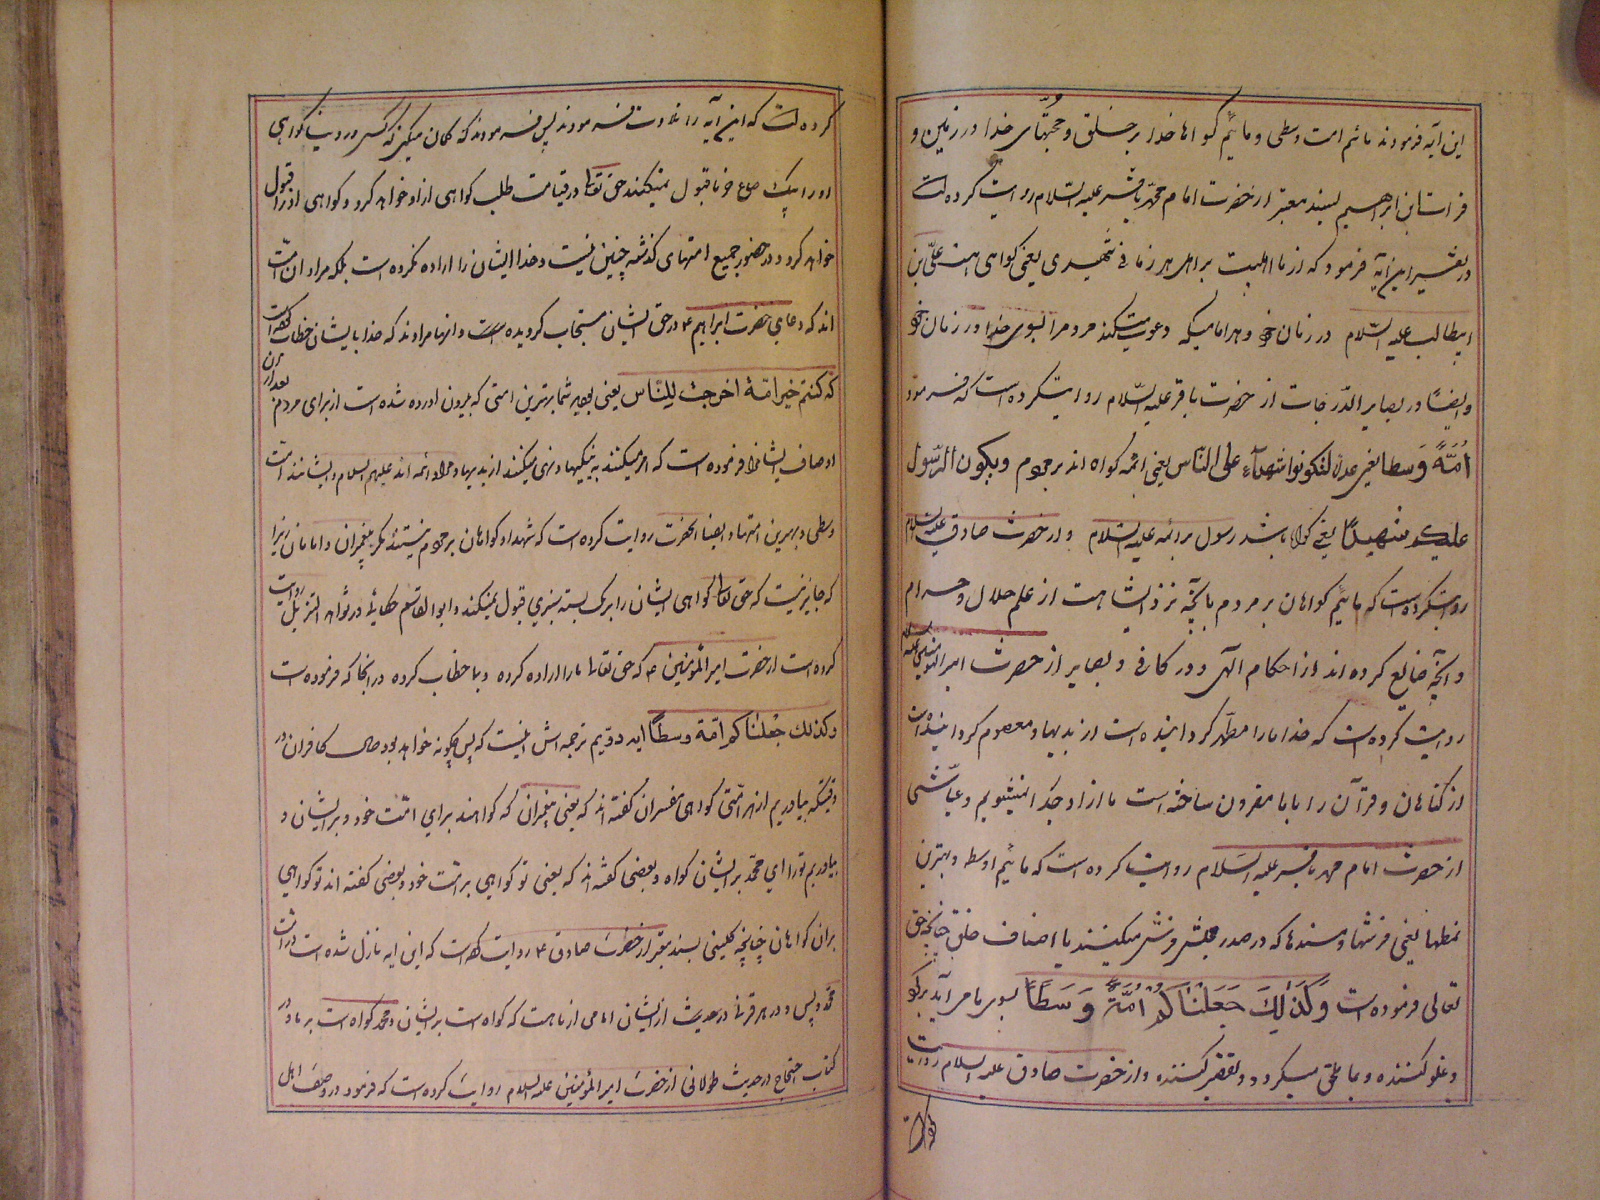 این آیه فرمودند مائیم امت وسطی و مائیم گواهان خدا بر خلق و حجتهای خدا در زمین و
فرات ابن ابراهیم بسند معتبر از حضرت امام محمد باقر علیه السلام روایت کرده است
در تفسیر این آیه فرمود که از ما اهلبیت بر اهل هر زمانی شهیدی یعنی گواهی است علی بن
ابیطالب علیه السلام در زمان خود و هر امامیکه دعوت میکند مردم را بسوی خدا در زمان خود
و ایضا در بصایر الدرجات از حضرت باقر علیه السلام روایتکرده است که فرمود
اُمَّةً وَسطا یعنی عدلا لتکونوا شهدآء علی النّاس یعنی ائمه گواه اند بر مردم و یکون الرّسول
علیکم شهیدًا یعنی گواه باشد رسول بر ائمه علیه السلام و از حضرت صادق علیه السلام
روایتکرده است که مائیم گواهان بر مردم بآنچه نزد ایشانست از علم حلال و حرام
و آنچه ضایع کرده اند از احکام الهی و در کافی و بصایر از حضرت امیر المومنین علیه السلام
روایت کرده است که خدا ما را مطهر گردانیده است از بدیها و معصوم گردانیده است
از گناهان و قرآن را با ما مقرون ساخته است ما از او جدا نمیشویم و عیاشی
از حضرت امام محمد باقر علیه السلام روایت کرده است که مائیم اوسط و بهترین
نمطها یعنی فرشها و مسندها که در صدر مجلس فرش میکنند یا اصناف خلق چنانچه حق
تعالی فرموده است وَکَذٰلِکَ جَعَلْنٰاکُمْ اُمَّةً وَسَطًا بسوی ما می آید برگردد
و غلو کننده و بما ملحق میگردد و تقصیر کننده و از حضرت صادق علیه السلام روایت
کرده است که این آیه را تلاوت فرمودند پس فرمودند که گمان میکنی که کسی در دنیا گواهی
او را بیک صاع خرما قبول نمیکنند حق تعالی در قیامت طلب گواهی از او خواهد کرد و گواهی او را قبول
خواهد کرد در حضور جمیع امتهای گذشته چنین نیست و خدا ایشان را اراده نکرده است بلکه مراد آن امت
اند که دعای حضرت ابراهیم ع در حق ایشان مستجاب گردیده است و آنها مرادند که خدا بایشان خطاب کرده است
که کنتم خیر امّة اخرجت لِلنّاس یعنی بودید شما بهترین امتی که بیرون آورده شده است از برای مردم بعد از آن
اوصاف ایشانرا فرموده است که امر میکنند به نیکیها و نهی میکنند از بدیها و مراد ائمه اند علیهم السلام و ایشانند امت
وسطی و بهترین امتها و ایضا از انحضرت روایت کرده است که شهدا و گواهان بر مردم نیستند مگر پیغمبران و امامان زیرا
که جایز نیست که حق تعالی گواهی ایشان را بر یک بسته سبزی قبول نمیکند و ابو القاسم حسکانی در شواهد التنزیل روایت
کرده است از حضرت امیر المؤمنین ع که حق تعالی ما را اراده کرده و بما خطاب کرده در آنجا که فرموده است
وکذلک جعلنٰاکم امّة وسطًا آیه دویم ترجمه اش اینست که پس چگونه خواهد بود حال کافران در
وقتیکه بیاوریم از هر امتی گواهی مفسران گفته اند که یعنی پیغمبران که گواهند برای امت خود و بر ایشان و
بیاوریم تو را ای محمد بر ایشان گواه و بعضی گفته اند که یعنی تو گواهی بر امت خود و بعضی گفته اند تو گواهی
بر آن گواهان چنانچه کلینی بسند معتبر از حضرت صادق ع روایت کرده است که این آیه نازل شده است در امت
محمد و بس و در هر قرنی در حدیث از ایشان امامی از ما هست که گواه است بر ایشان و محمد گواه است بر ما و در
کتاب احتجاج در حدیث طولانی از حضرت امیر المؤمنین علیه السلام روایت کرده است که فرمود در وصف اهل